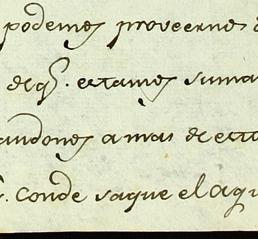 podemos proveernos d
de q.e estamos suma
andonos a mas de esto
. Conde saque el aqu